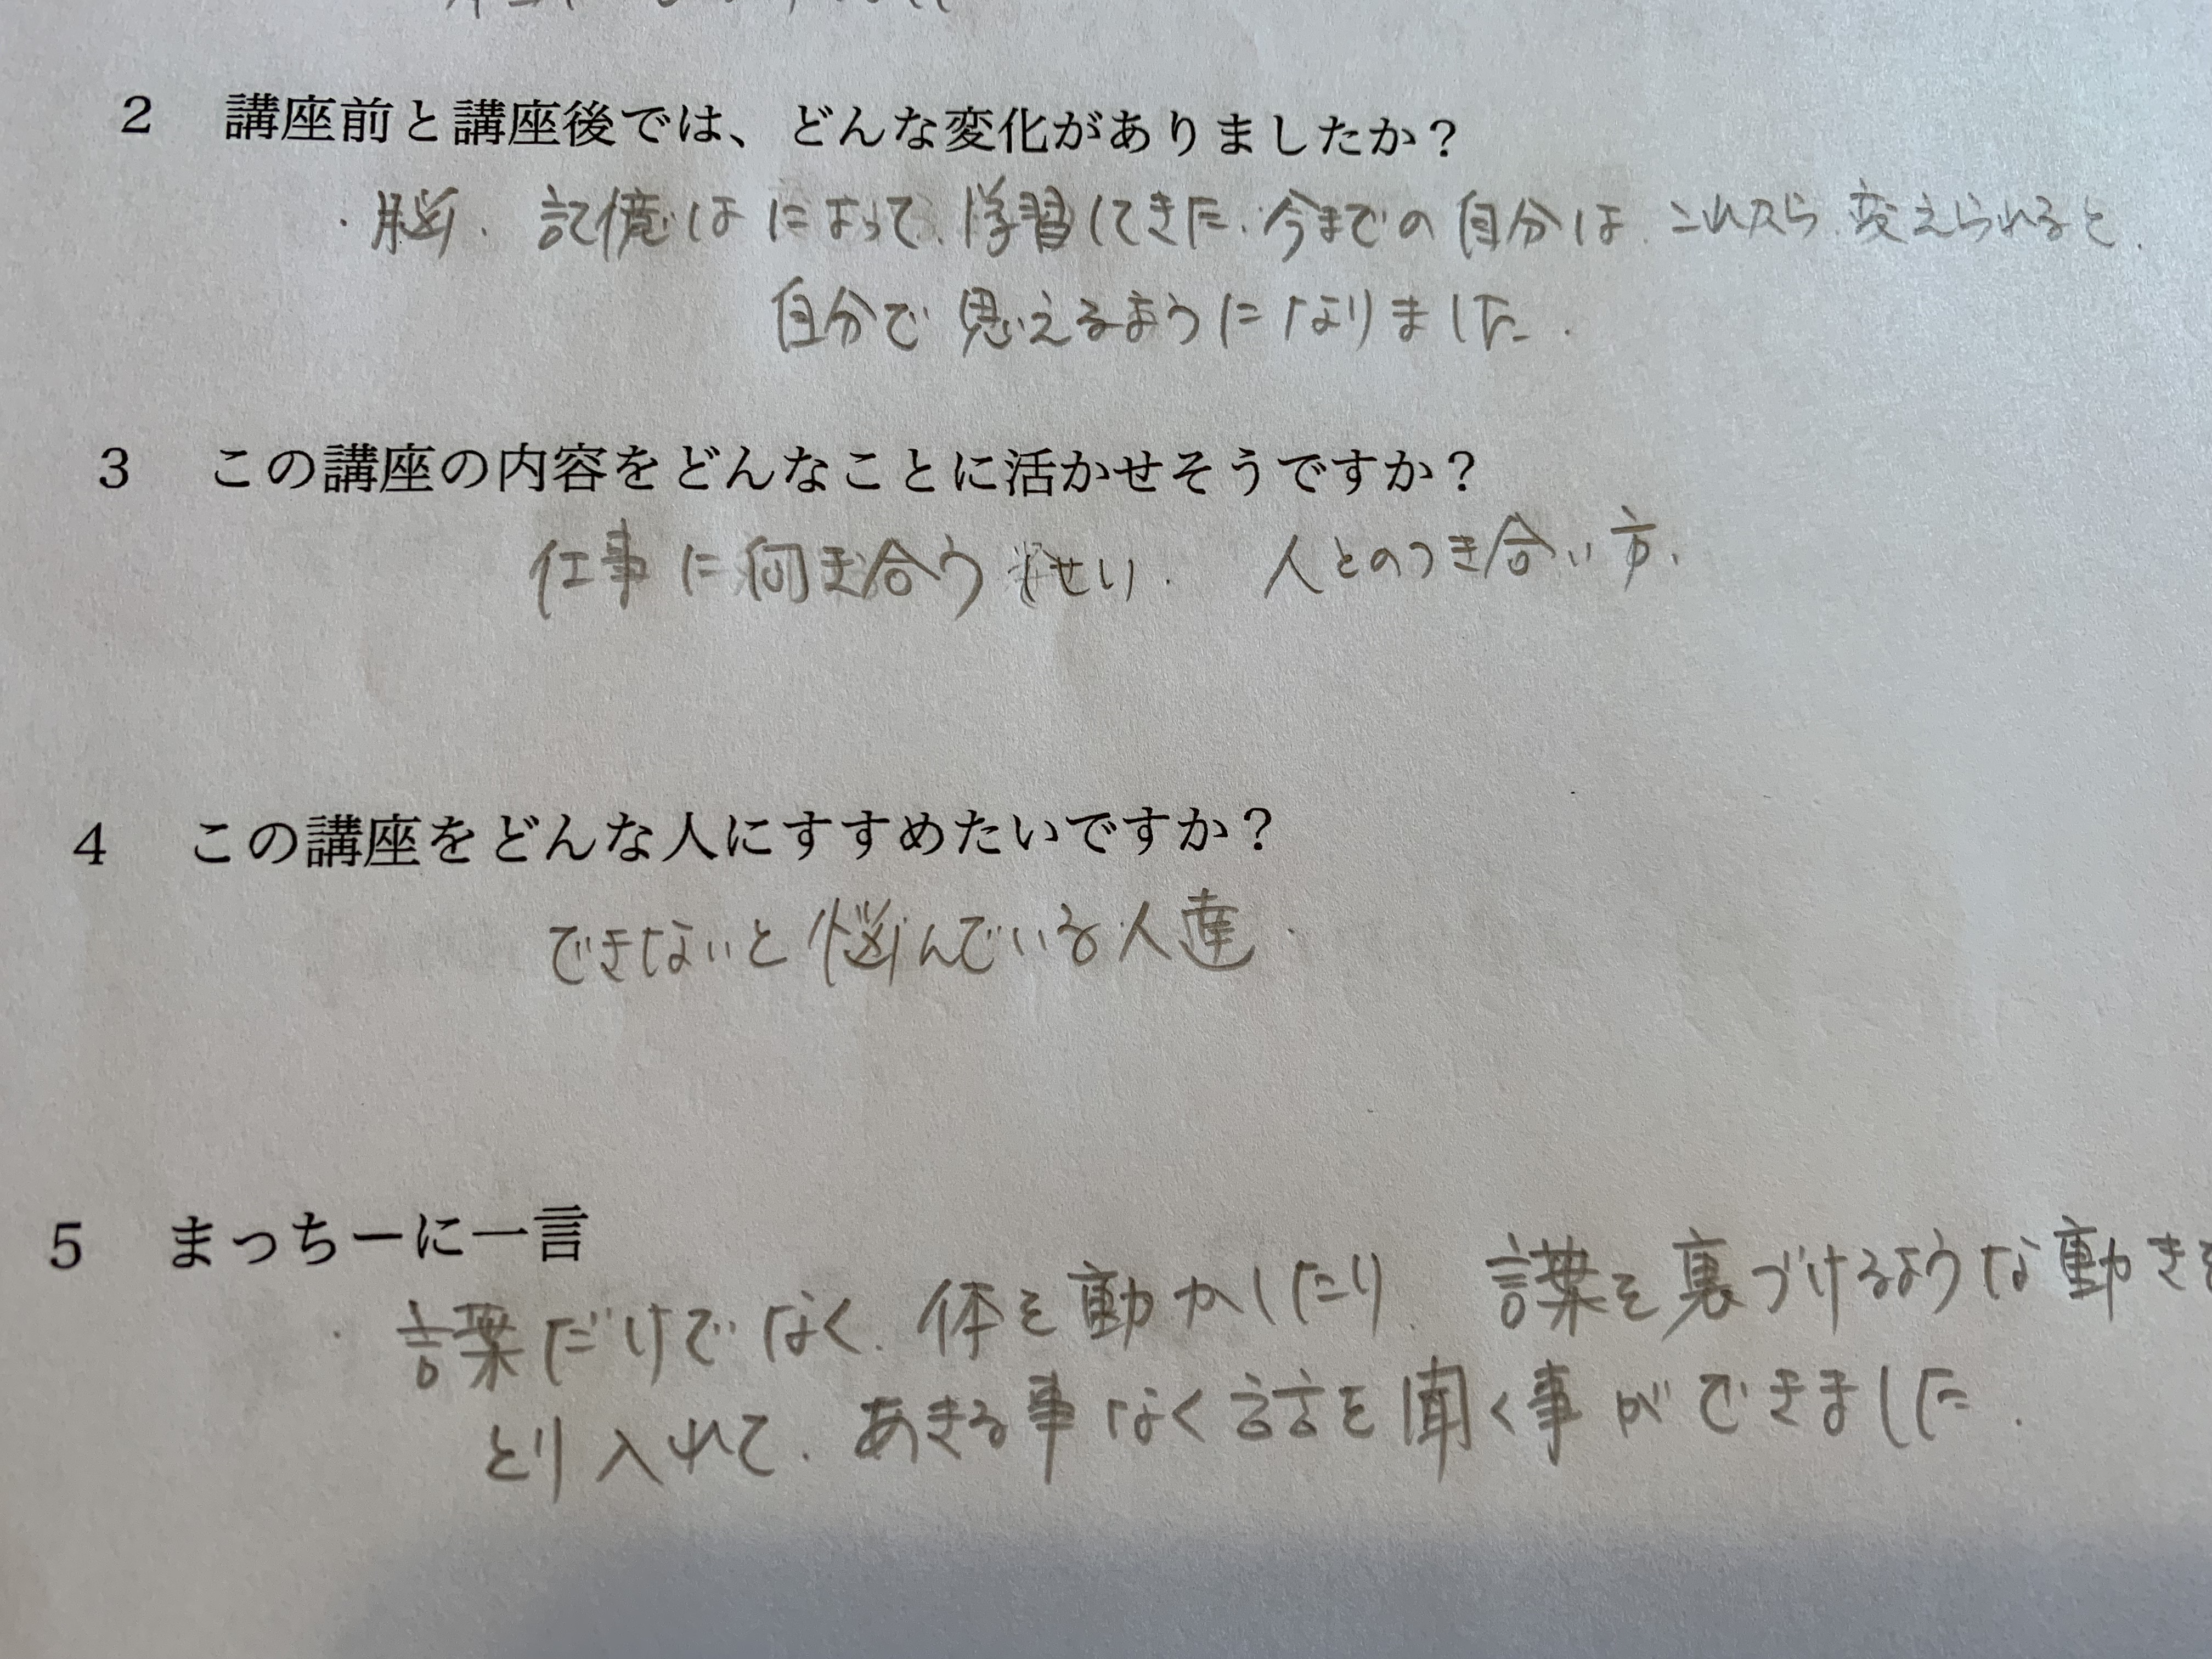 2 講座前と講座後では、どんな変化がありましたか？
・脳、記憶はによって、学習してきた、今までの自分は、これから、変えられると、
自分で思えるようになりました。
3 この講座の内容をどんなことに活かせそうですか？
仕事に向き合う しせい、 人とのつき合い方、
4 この講座をどんな人にすすめたいですか？
できないと悩んでいる人達、
5 まっちーに一言
・言葉だけでなく、体を動かしたり、言葉を裏づけるような動きを
とり入れて、あきる事なく話を聞く事ができました。